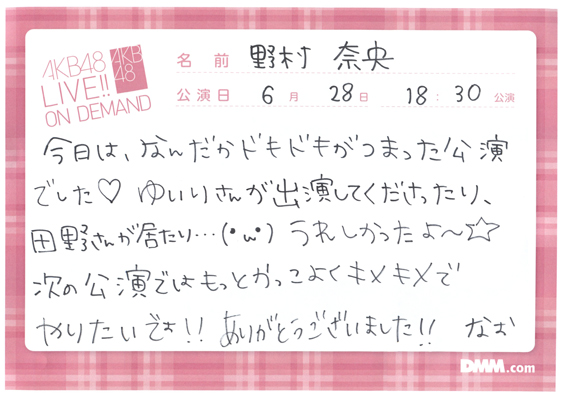 AKB48
LIVE!!
ON DEMAND
AKB
48
名前 野村 奈央
公演日 6月 28日 18:30 公演
今日は、なんだかドキドキがつまった公演
でした♡ ゆいりさんが出演してくださったり、
田野さんが居たり…(・ω・) うれしかったよ〜☆
次の公演ではもっとかっこよくキメキメで
やりたいです!! ありがとうございました!! なお
DMM.com